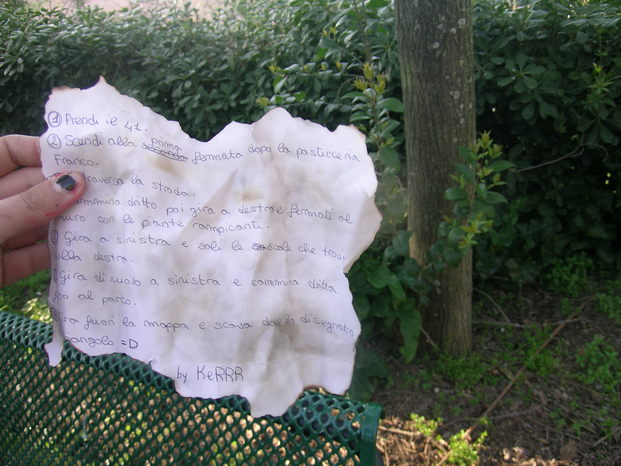 ① Prendi il 41.
② Scendi alla prima fermata dopo la pasticceria
Franco.
raversa la strada.
ammina dritto poi gira a destra e fermati al
muro con le piante rampicanti.
Gira a sinistra e sali le scale che trovi
ulla destra.
Gira di nuovo a sinistra e cammina dritta
ino al parco.
ra fuori la mappa e scava dove ho disegnato
angolo =D
by KeRRR